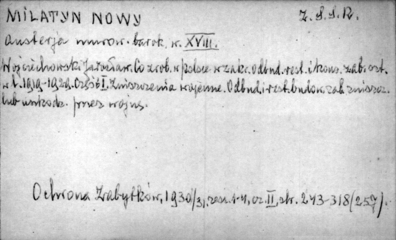 MILATYN NOWY
Z.S.S.R.
austerja murow. barok. w. XVIII.
Wojciechowski Jarosław. Co zrob. w Polsce w zakr. Odbud. rest. i kons. zab. szt.
w l. 1919-1929. Część I. Zniszczenia wojenne. Odbud. i rest. budow. zab. zniszcz.
lub uszkodz. przez wojnę.
Ochrona Zabytków, 1930/31, zesz. 1-4, cz. II, str. 243-318 (257).